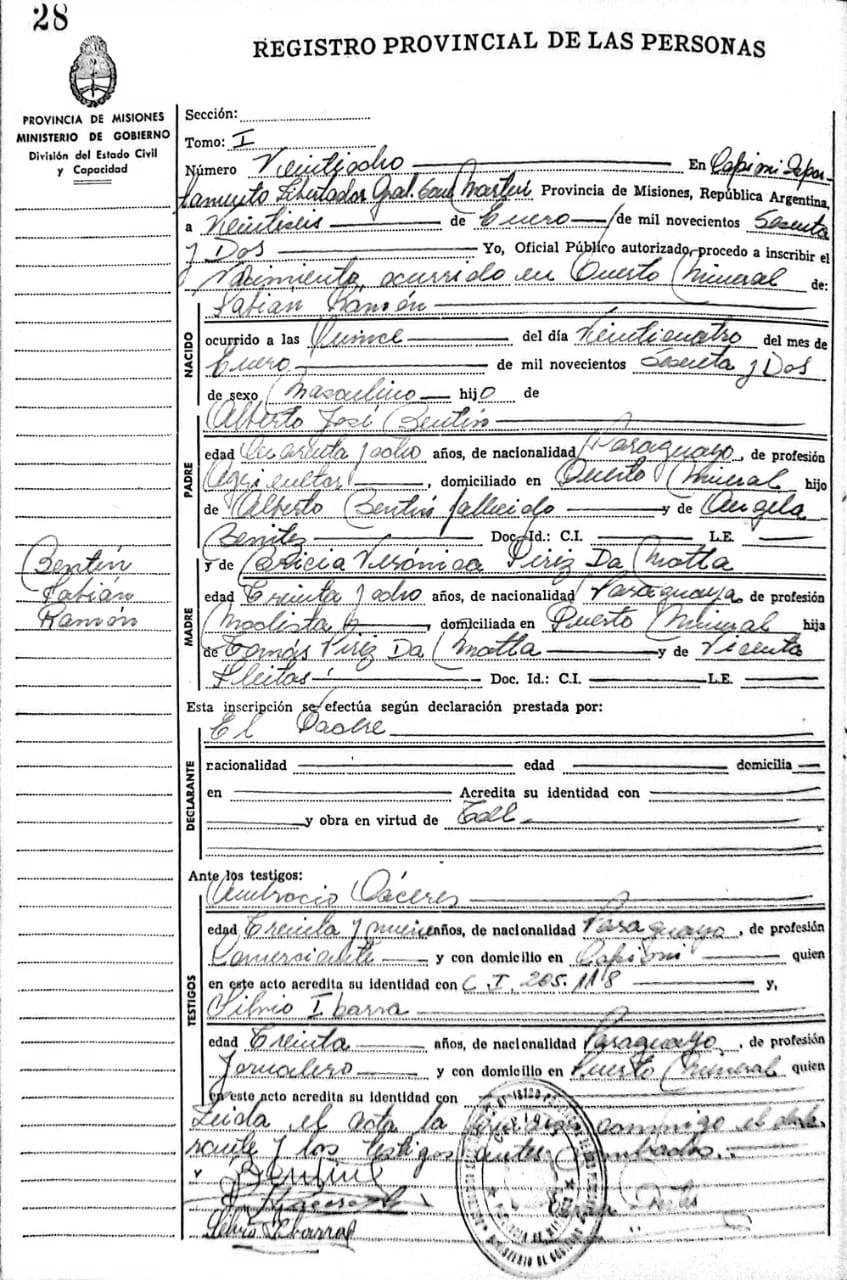 28
REGISTRO PROVINCIAL DE LAS PERSONAS
PROVINCIA DE MISIONES
MINISTERIO DE GOBIERNO
División del Estado Civil
y Capacidad
Sección:
Tomo: I
Número Veintiocho En Capioví Depar-
tamento Libertador Gral. San Martín Provincia de Misiones, República Argentina,
a Veintiseis de Enero de mil novecientos Sesenta
y Dos Yo, Oficial Público autorizado, procedo a inscribir el
Nacimiento ocurrido en Puerto Mineral de:
Fabián Ramón
NACIDO
ocurrido a las Quince del día Veinticuatro del mes de
Enero de mil novecientos Sesenta y Dos
de sexo Masculino hijo de
Alberto José Bentín
PADRE
edad Cuarenta y ocho años, de nacionalidad Paraguayo, de profesión
Agricultor, domiciliado en Puerto Mineral hijo
de Alberto Bentín fallecido y de Angela
Benitez Doc. Id.: C.I. L.E.
Bentín
Fabián
Ramón
y de Verónica Piriz Da Motta
MADRE
edad Treinta y ocho años, de nacionalidad Paraguaya de profesión
Modista, domiciliada en Puerto Mineral hija
de Tomás Piriz Da Motta y de Vicenta
Fleitas Doc. Id.: C.I. L.E.
Esta inscripción se efectúa según declaración prestada por:
El Padre
DECLARANTE
nacionalidad edad domicilia
en Acredita su identidad con
y obra en virtud de
Ante los testigos:
Ambrocio Cáceres
TESTIGOS
edad Treinta y nueve años, de nacionalidad Paraguayo, de profesión
Comerciante y con domicilio en Capioví quien
en este acto acredita su identidad con C.I. 205.118 y,
Silvio Ibarra
edad Treinta años, de nacionalidad Paraguayo, de profesión
Jornalero y con domicilio en Puerto Mineral quien
en este acto acredita su identidad con
Leida el acta la conmigo el decla-
rante y los testigos antes nombrados.
Bentín
Silvio Ibarra